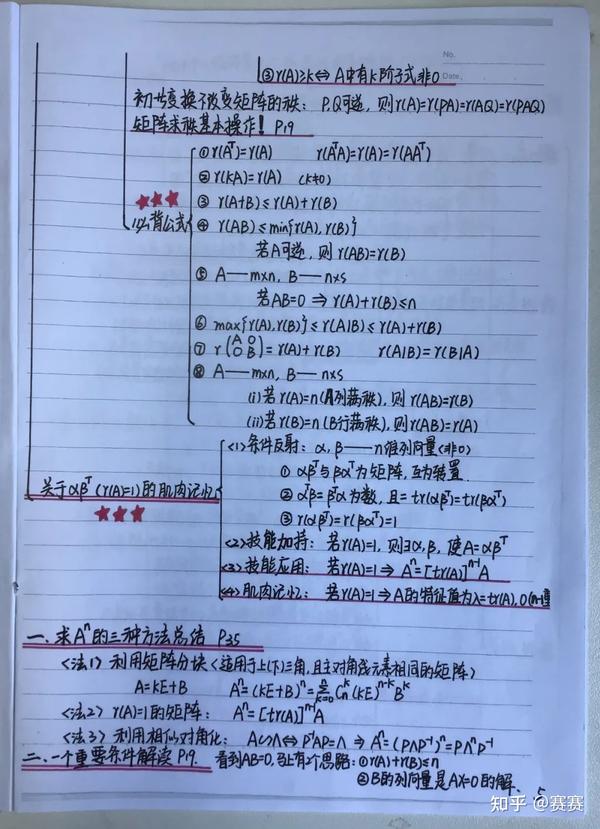 No.
③ r(A)≥k⇔A中有k阶子式非0
Date.
初等变换不改变矩阵的秩: P,Q可逆, 则r(A)=r(PA)=r(AQ)=r(PAQ)
矩阵求秩基本操作! P19
① r(Aᵀ)=r(A) r(AᵀA)=r(A)=r(AAᵀ)
② r(kA)=r(A) (k≠0)
③ r(A+B)≤r(A)+r(B)
必背公式
④ r(AB)≤min{r(A),r(B)}
若A可逆, 则r(AB)=r(B)
⑤ A—m×n, B—n×s
若AB=0 ⇒ r(A)+r(B)≤n
⑥ max{r(A),r(B)}≤r(A|B)≤r(A)+r(B)
⑦ r(A 0
0 B)=r(A)+r(B) r(A|B)=r(B|A)
⑧ A—m×n, B—n×s
(i)若r(A)=n(A列满秩), 则r(AB)=r(B)
(ii)若r(B)=n(B行满秩), 则r(AB)=r(A)
关于αβᵀ(r(A)=1)的肌肉记忆
<1>条件反射: α,β—n维列向量(非0)
① αβᵀ与βαᵀ为矩阵, 互为转置
② αᵀβ=βᵀα为数, 且=tr(αβᵀ)=tr(βαᵀ)
③ r(αβᵀ)=r(βαᵀ)=1
<2>技能加持: 若r(A)=1, 则∃α,β, 使A=αβᵀ
<3>技能应用: 若r(A)=1⇒Aⁿ=[tr(A)]ⁿ⁻¹A
<4>肌肉记忆: 若r(A)=1⇒A的特征值为λ=tr(A),0(n-1重
一、求Aⁿ的三种方法总结 P35
<法1>利用矩阵分块<适用于上(下)三角,且主对角线元素相同的矩阵>
A=kE+B Aⁿ=(kE+B)ⁿ=∑ₖ₌₀ⁿ Cₙᵏ(kE)ⁿ⁻ᵏBᵏ
<法2>r(A)=1的矩阵: Aⁿ=[tr(A)]ⁿ⁻¹A
<法3>利用相似对角化: A∽Λ⇔P⁻¹AP=Λ ⇒ Aⁿ=(PΛP⁻¹)ⁿ=PΛⁿP⁻¹
二、一个重要条件解读 P19 看到AB=0,马上有2个思路: ①r(A)+r(B)≤n
②B的列向量是AX=0的解.
5
知乎 @赛赛